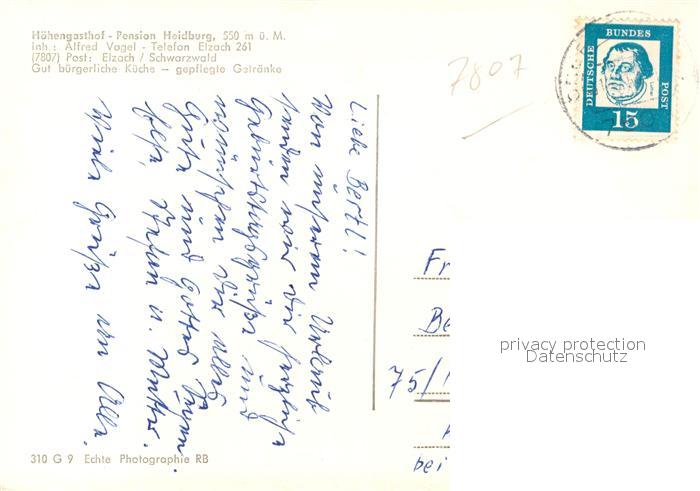 Höhengasthof - Pension Heidburg, 550 m ü. M.
Inh.: Alfred Vogel - Telefon Elzach 261
(7807) Post: Elzach / Schwarzwald
Gut bürgerliche Küche – gepflegte Getränke
7807
DEUTSCHE BUNDES POST
15
Liebe Bertl!
Von unserem Urlaub
senden wir dir herzliche
Geburtstagsgrüße und
wünschen dir alles
Gute und Gottes Segen.
u. Mutter.
Viele Grüße von Allen
Fr
Be
75/1
bei
privacy protection
Datenschutz
310 G 9 Echte Photographie RB